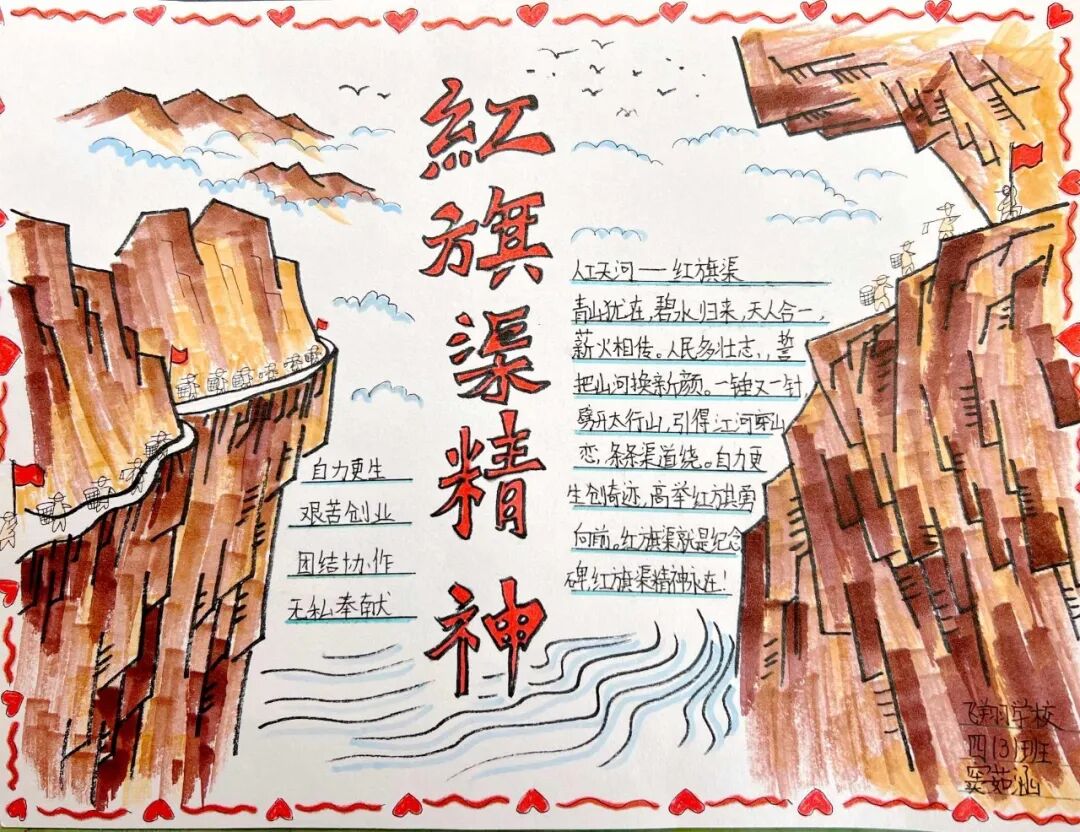 紅旗渠精神
自力更生
艰苦创业
团结协作
无私奉献
人工天河——红旗渠
青山犹在,碧水归来,天人合一,
薪火相传。人民多壮志,,誓
把山河换新颜。一锤又一钎,
劈开太行山,引得江河穿山
恋,条条渠道绕。自力更
生创奇迹,高举红旗勇
向前。红旗渠就是纪念
碑,红旗渠精神永在!
飞翔学校
四(3)班
窦茹涵